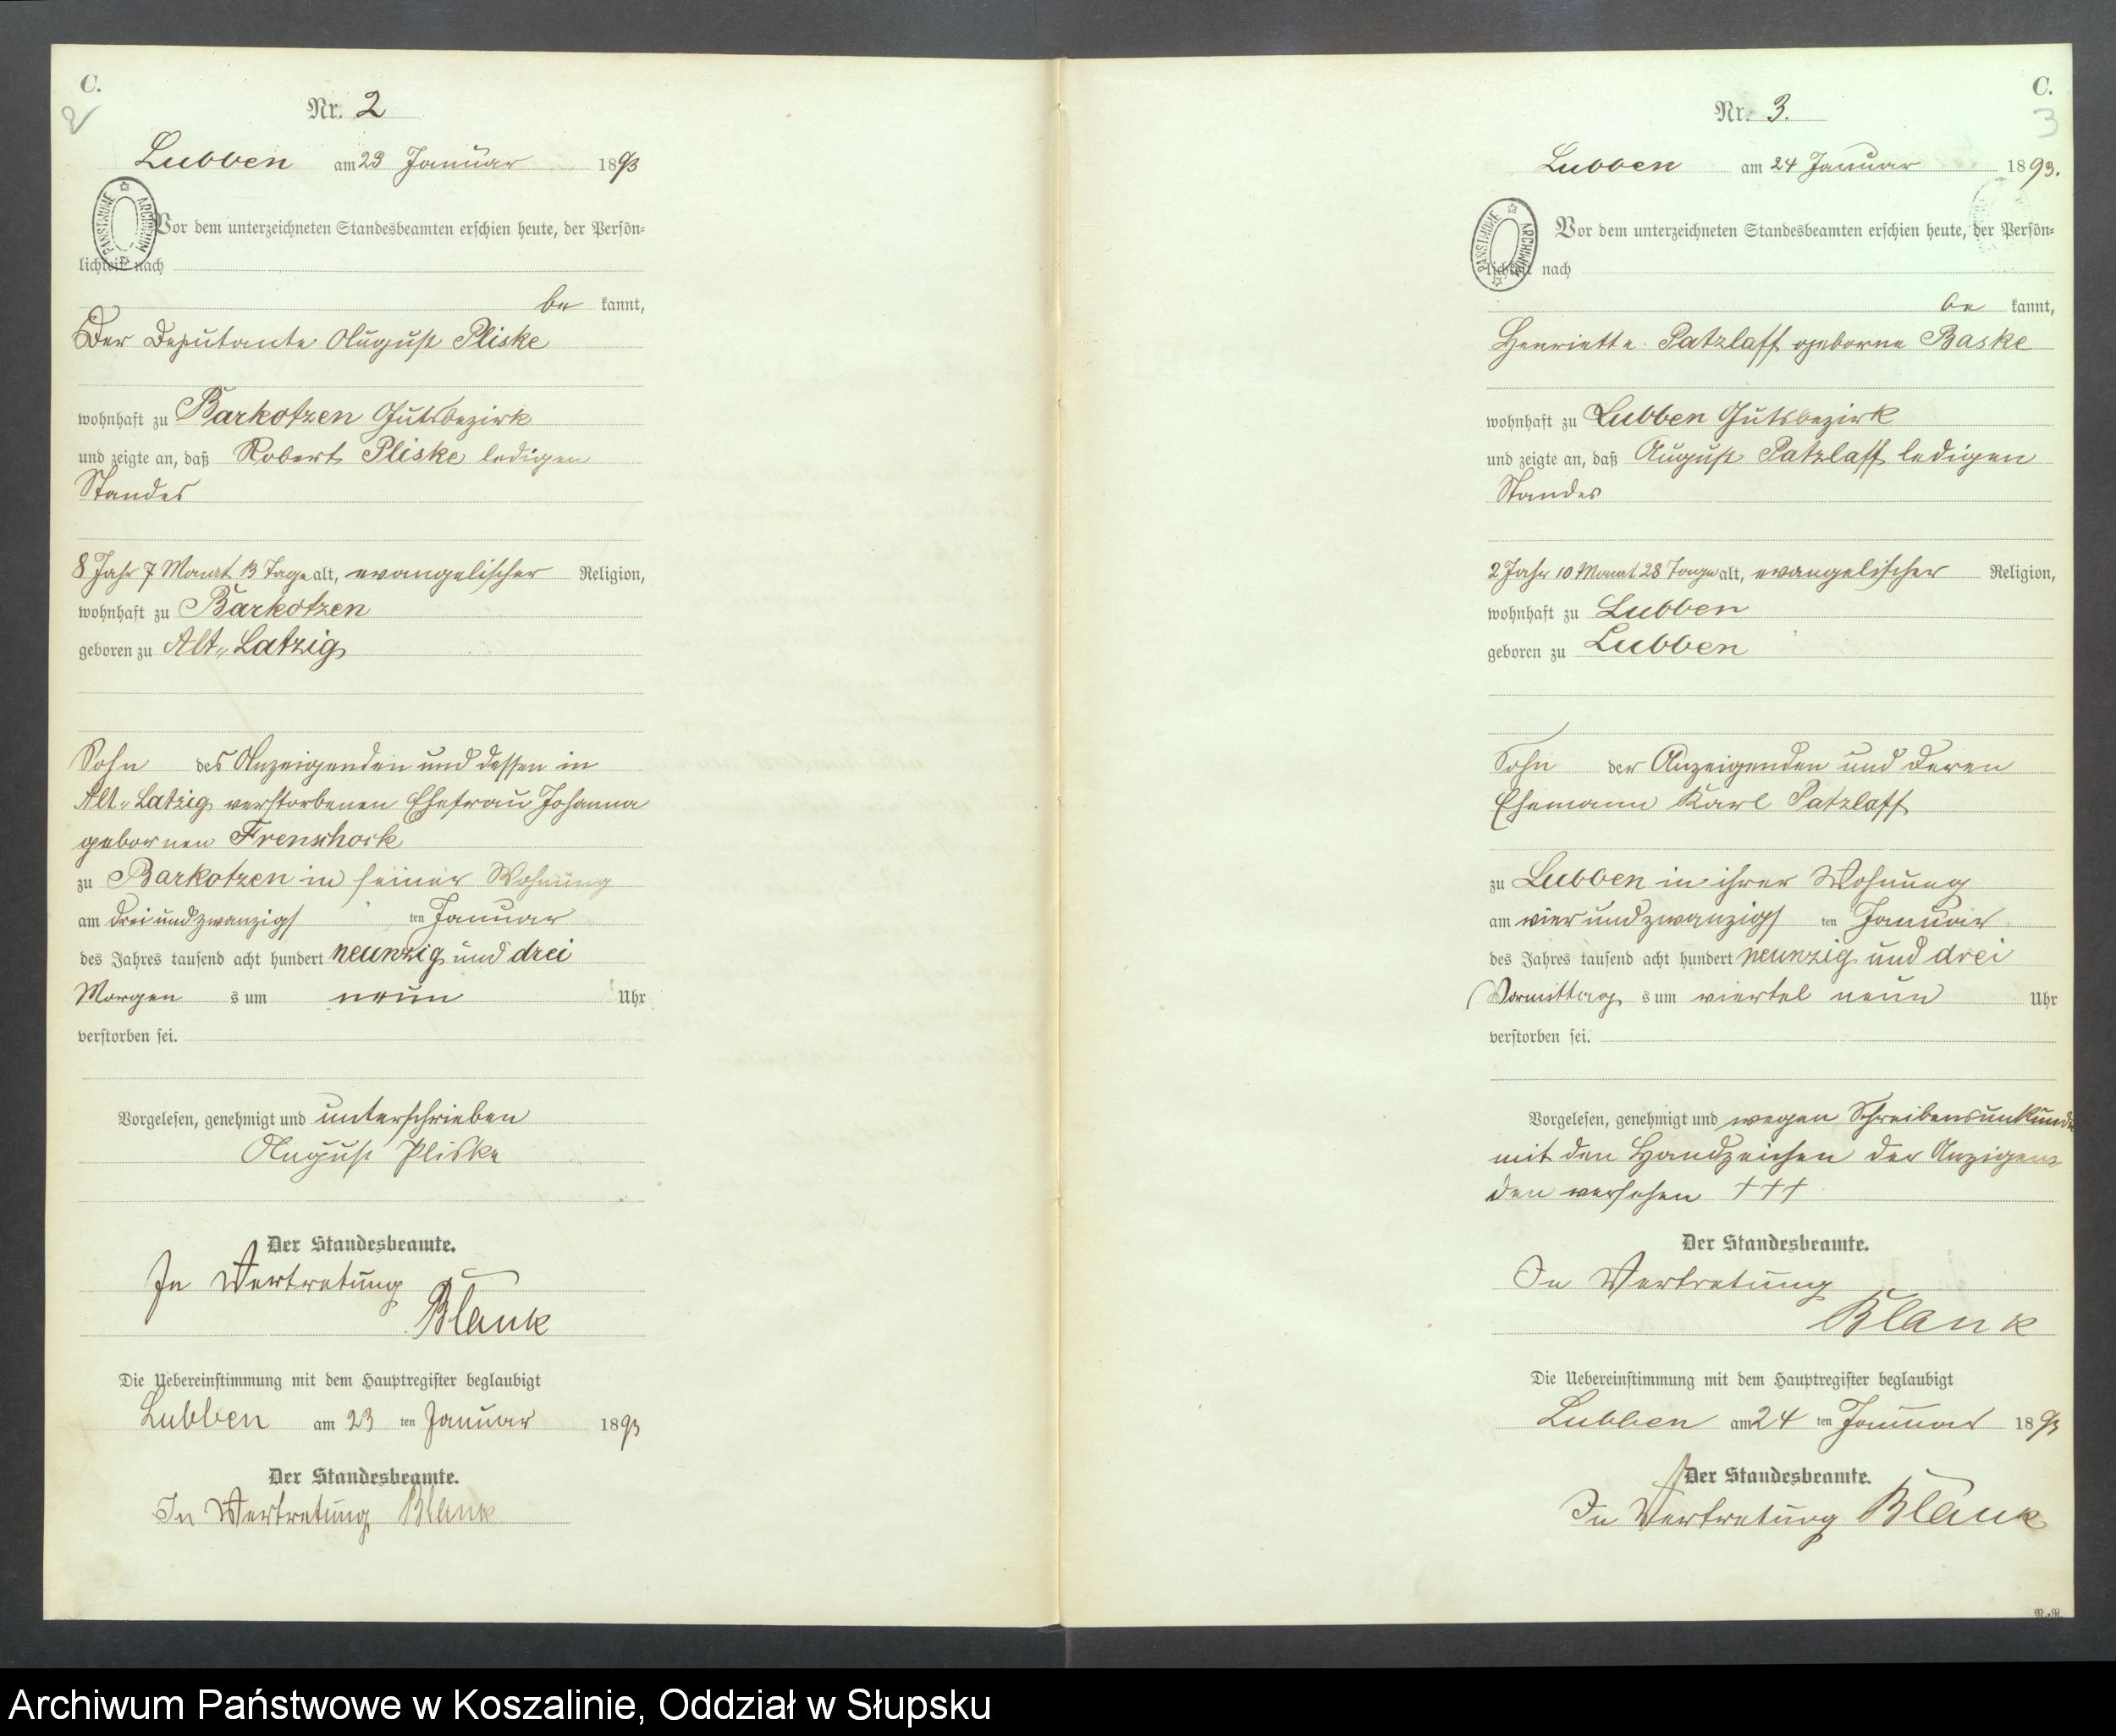 C.
2
Nr. 2
Lubben am 23 Januar 1893
PAŃSTWOWE ARCHIWUM
Vor dem unterzeichneten Standesbeamten erschien heute, der Persön-
lichkeit nach
be kannt,
Der Deputante August Pliske
wohnhaft zu Barkotzen Gutsbezirk
und zeigte an, daß Robert Pliske ledigen
Standes
8 Jahr 7 Monat 13 Tage alt, evangelischer Religion,
wohnhaft zu Barkotzen
geboren zu Alt-Latzig
Sohn des Anzeigenden und dessen in
Alt-Latzig verstorbenen Ehefrau Johanna
gebornen
zu Barkotzen in seiner Wohnung
am dreiundzwanzigs ten Januar
des Jahres tausend acht hundert neunzig und drei
Morgen s um neun Uhr
verstorben sei.
Vorgelesen, genehmigt und unterschrieben
August Pliske
Der Standesbeamte.
In Vertretung
Blank
Die Uebereinstimmung mit dem Hauptregister beglaubigt
Lubben am 23 ten Januar 1893
Der Standesbeamte.
In Vertretung Blank
C.
3
Nr. 3.
Lubben am 24 Januar 1893.
PAŃSTWOWE ARCHIWUM
Vor dem unterzeichneten Standesbeamten erschien heute, der Persön-
lichkeit nach
be kannt,
Henriette Patzlaff geborne Baske
wohnhaft zu Lubben Gutsbezirk
und zeigte an, daß August Patzlaff ledigen
Standes
2 Jahr 10 Monat 28 Tage alt, evangelischer Religion,
wohnhaft zu Lubben
geboren zu Lubben
Sohn der Anzeigenden und deren
Ehemann Karl Patzlaff
zu Lubben in ihrer Wohnung
am vierundzwanzigs ten Januar
des Jahres tausend acht hundert neunzig und drei
Vormittag s um viertel neun Uhr
verstorben sei.
Vorgelesen, genehmigt und wegen Schreibensunkunde
mit den Handzeichen der Anzigen-
den versehen † † †
Der Standesbeamte.
In Vertretung
Blank
Die Uebereinstimmung mit dem Hauptregister beglaubigt
Lubben am 24 ten Januar 1893
Der Standesbeamte.
In Vertretung Blank
Archiwum Państwowe w Koszalinie, Oddział w Słupsku